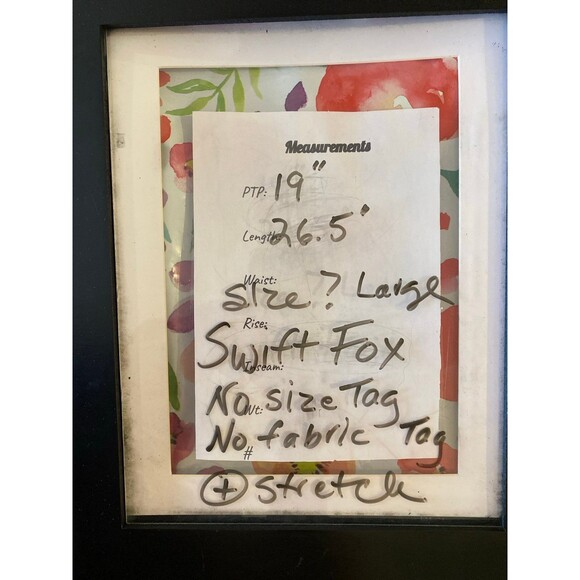 Measurements
PTP: 19"
Length: 26.5"
Waist:
size? Large
Rise:
Swift Fox
Inseam:
No size Tag
Wt:
No fabric Tag
#
+ stretch